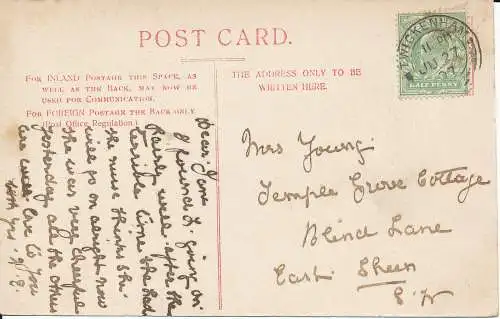 POST CARD.
FOR INLAND POSTAGE THIS SPACE, AS
WELL AS THE BACK, MAY NOW BE
USED FOR COMMUNICATION.
FOR FOREIGN POSTAGE THE BACK ONLY
(Post Office Regulation.)
THE ADDRESS ONLY TO BE
WRITTEN HERE.
TWICKENHAM
HALF PENNY
Dear Jane
is going on
fairly well after the
terrible time she had
the nurse thinks she
will go on alright now
she was very cheerful
yesterday all the others
are well love to you
Mrs Young
Temple Grove Cottage
Blind Lane
East Sheen
S.W